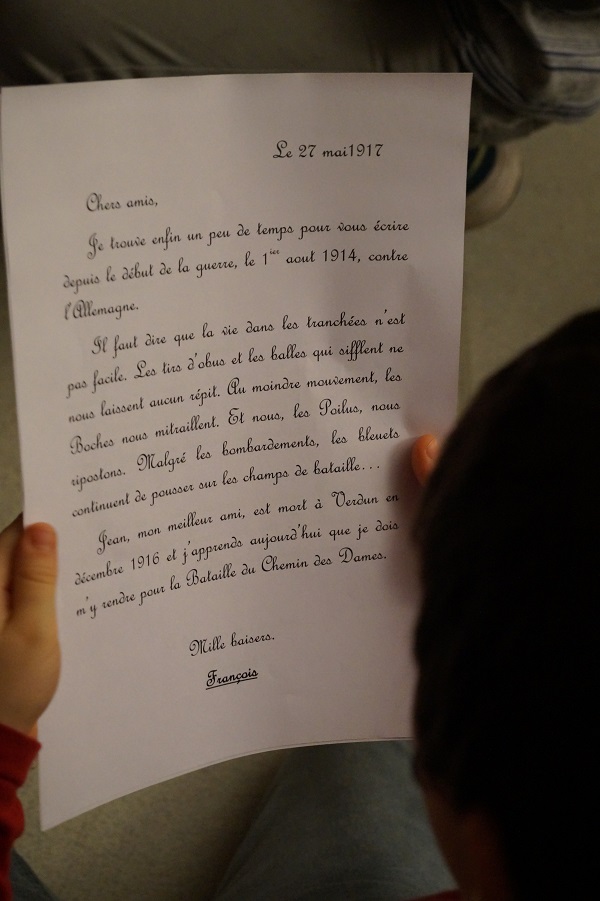 Le 27 mai1917
Chers amis,
Je trouve enfin un peu de temps pour vous écrire
depuis le début de la guerre, le 1ier aout 1914, contre
l'Allemagne.
Il faut dire que la vie dans les tranchées n'est
pas facile. Les tirs d'obus et les balles qui sifflent ne
nous laissent aucun répit. Au moindre mouvement, les
Boches nous mitraillent. Et nous, les Poilus, nous
ripostons. Malgré les bombardements, les bleuets
continuent de pousser sur les champs de bataille...
Jean, mon meilleur ami, est mort à Verdun en
décembre 1916 et j'apprends aujourd'hui que je dois
m'y rendre pour la Bataille du Chemin des Dames.
Mille baisers.
François